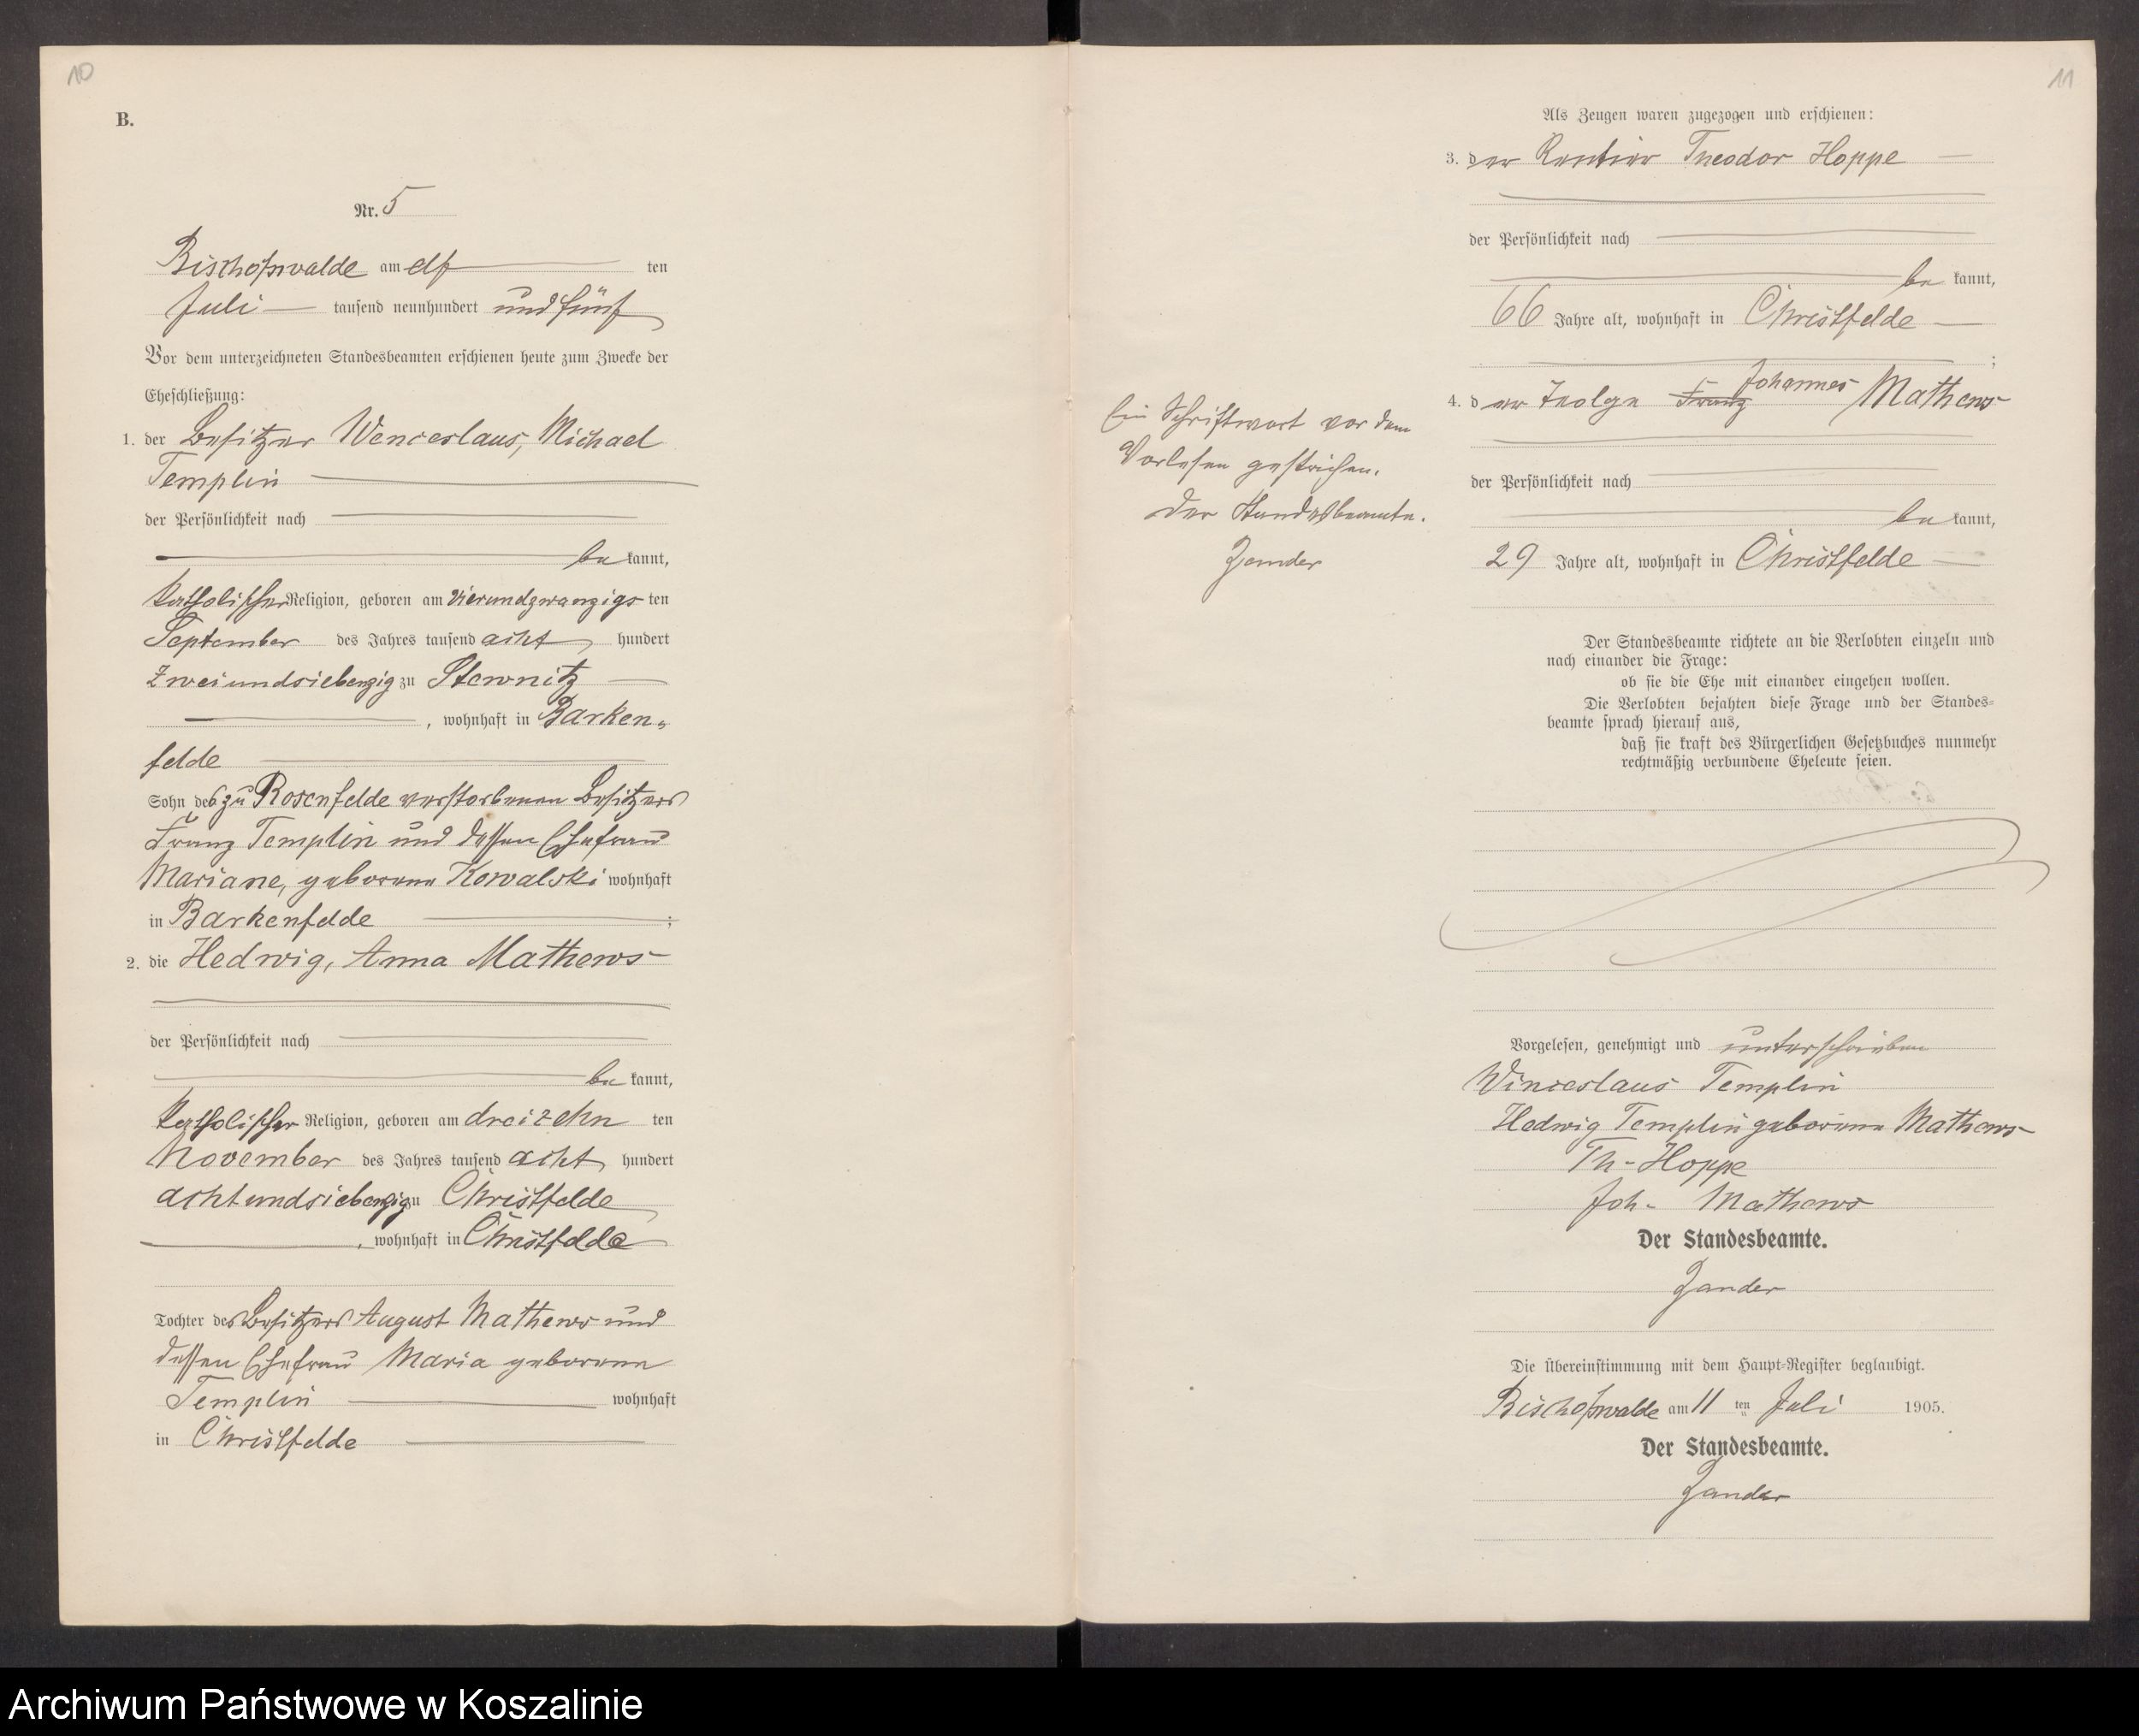 10
B.
Nr. 5
Bischofswalde am elf ten
Juli tausend neunhundert und fünf
Vor dem unterzeichneten Standesbeamten erschienen heute zum Zwecke der
Eheschließung:
1. der Besitzer Wenceslaus, Michael
Templin
der Persönlichkeit nach
be kannt,
katholischer Religion, geboren am vierundzwanzigs ten
September des Jahres tausend acht hundert
zweiundsiebenzig zu Stewnitz
, wohnhaft in Barken„
felde
Sohn des zu Rosenfelde verstorbenen Besitzers
Franz Templin und dessen Ehefrau
Mariane, geborene Kowalski wohnhaft
in Barkenfelde ;
2. die Hedwig, Anna Mathews
der Persönlichkeit nach
be kannt,
katholischer Religion, geboren am dreizehn ten
November des Jahres tausend acht hundert
achtundsiebenzig zu Christfelde
, wohnhaft in Christfelde
Tochter des Besitzers August Mathews und
dessen Ehefrau Maria geborene
Templin wohnhaft
in Christfelde
11
Als Zeugen waren zugezogen und erschienen:
3. der Rentier Theodor Hoppe
der Persönlichkeit nach
be kannt,
66 Jahre alt, wohnhaft in Christfelde
;
4. der Franz Johannes Mathews
der Persönlichkeit nach
be kannt,
29 Jahre alt, wohnhaft in Christfelde
Ein Schriftwort vor dem
Vorlesen gestrichen.
Der Standesbeamte.
Zander
Der Standesbeamte richtete an die Verlobten einzeln und
nach einander die Frage:
ob sie die Ehe mit einander eingehen wollen.
Die Verlobten bejahten diese Frage und der Standes=
beamte sprach hierauf aus,
daß sie kraft des Bürgerlichen Gesetzbuches nunmehr
rechtmäßig verbundene Eheleute seien.
Vorgelesen, genehmigt und unterschrieben
Winceslaus Templin
Hedwig Templin geborene Mathews
Th. Hoppe
Joh. Mathews
Der Standesbeamte.
Zander
Die Übereinstimmung mit dem Haupt=Register beglaubigt.
Bischofswalde am 11 ten Juli 1905.
Der Standesbeamte.
Zander
Archiwum Państwowe w Koszalinie